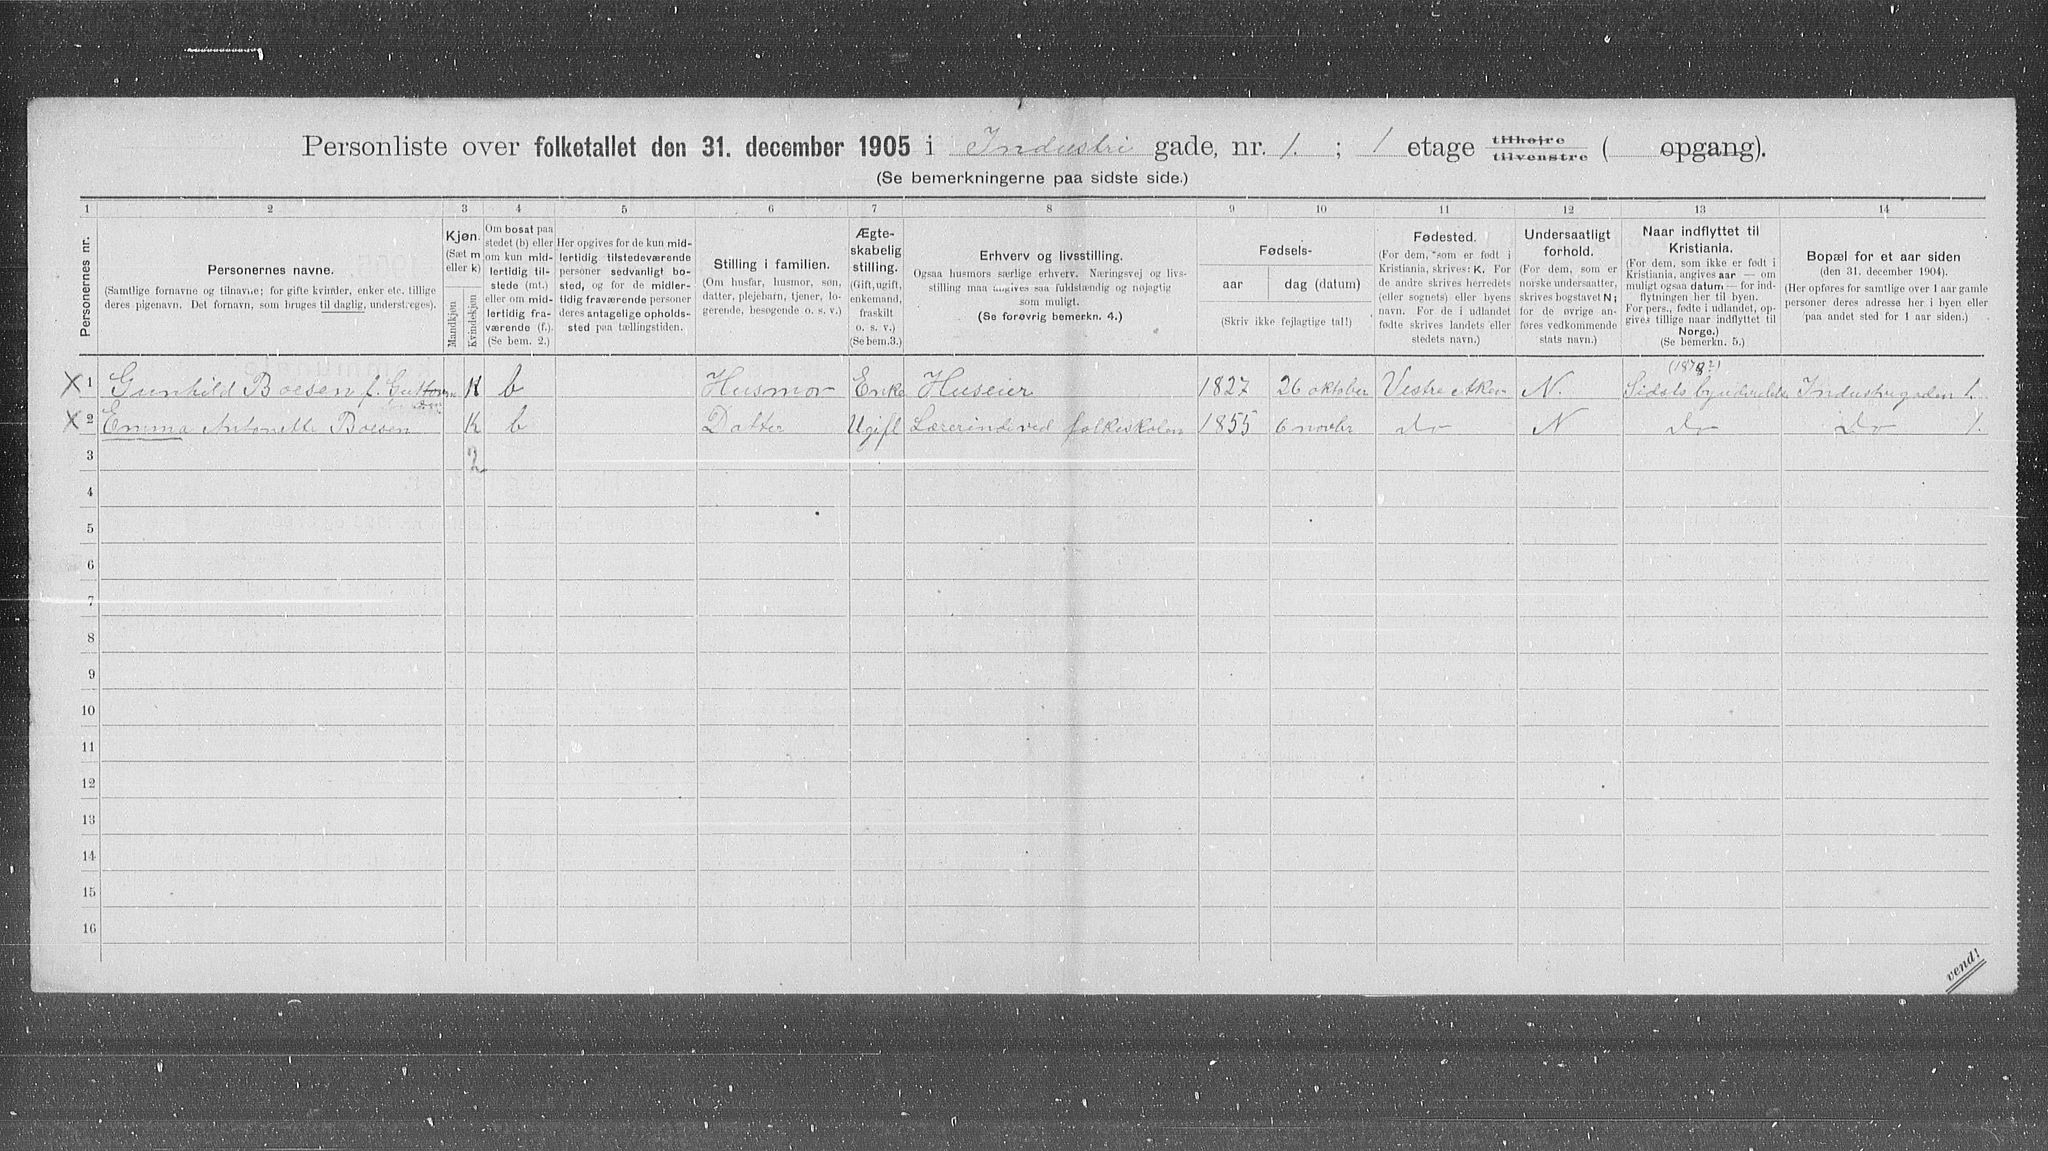 Personliste over folketallet den 31. december 1905 i Industri gade, nr. 1. ; 1 etage tilhøjre tilvenstre ( opgang).
(Se bemerkningerne paa sidste side.)
1 2 3 4 5 6 7 8 9 10 11 12 13 14
Personernes nr.
Personernes navne.
(Samtlige fornavne og tilnavne; for gifte kvinder, enker etc. tillige
deres pigenavn. Det fornavn, som bruges til daglig, understreges).
Kjøn.
(Sæt m
eller k)
Mandkjøn
Kvindekjøn
Om bosat paa
stedet (b) eller
om kun mid-
lertidig til-
stede (mt.)
eller om mid-
lertidig fra-
værende (f.).
(Se bem. 2.)
Her opgives for de kun mid-
lertidig tilstedeværende
personer sedvanligt bo-
sted, og for de midler-
tidig fraværende personer
deres antagelige opholds-
sted paa tællingstiden.
Stilling i familien.
(Om husfar, husmor, søn,
datter, plejebarn, tjener, lo-
gerende, besøgende
o. s. v.)
Ægte-
skabelig
stilling.
(Gift, ugift,
enkemand,
fraskilt
o. s. v.)
(Se bem. 3.)
Erhverv og livsstilling.
Ogsaa husmors særlige erhverv. Næringsvej og livs-
stilling maa angives saa fuldstændig og nøjagtig
som muligt.
(Se forøvrig bemerkn. 4.)
Fødsels-
aar
dag (datum)
(Skriv ikke fejlagtige tal!)
Fødested.
(For dem, som er født i
Kristiania, skrives: K. For
de andre skrives herredets
(eller sognets) eller byens
navn. For de i udlandet
fødte skrives landets eller
stedets navn.)
Undersaatligt
forhold.
(For dem, som er
norske undersaatter,
skrives bogstavet N;
for de øvrige an-
føres vedkommende
stats navn.)
Naar indflyttet til
Kristiania.
(For dem, som ikke er født i
Kristiania, angives aar — om
muligt ogsaa datum — for ind-
flytningen her til byen.
For pers., fødte i udlandet, op-
gives tillige naar indflyttet til
Norge.)
(Se bemerkn. 5.)
Bopæl for et aar siden
(den 31. december 1904).
(Her opføres for samtlige over 1 aar gamle
personer deres adresse her i byen eller
paa andet sted for 1 aar siden.)
(1878?)
X 1 Gunhild Boesen f. K b Husmor Enke Huseier 1827 26 oktober Vestre Aker N. Sidste Industrigaden 1.
X 2 Emma Antonette Boesen K b Datter Ugift Lærerinde ved folkeskolen 1855 6 novbr do N do Do 1.
3 2
4
5
6
7
8
9
10
11
12
13
14
15
16
vend!